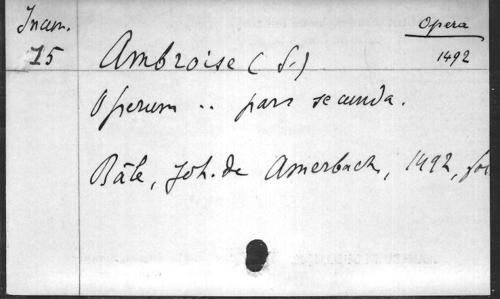 Incun.
15
Opera
1492
Ambroise (S.)
Operum .. pars secunda.
Bâle, Joh. de Amerbach, 1492, fol